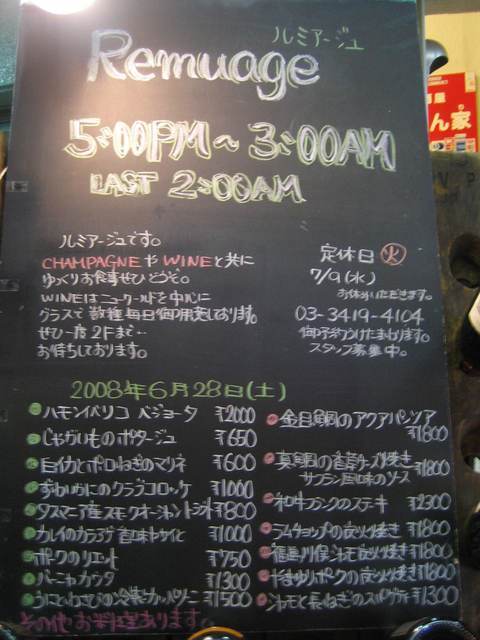 ルミアージュ
Remuage
5:00PM～3:00AM
LAST 2:00AM
ルミアージュです。
CHAMPAGNEやWINEと共に
ゆっくりお食事ぜひどうぞ。
WINEはニューワールドを中心に
グラスで数種毎日御用意しております。
ぜひ一度2Fまで…
お待ちしております。
定休日 火
7/9(水)
お休みいただきます。
03-3419-4104
御予約うけたまわります。
スタッフ募集中。
2008年6月28日(土)
ハモンイベリコ ベジョータ ¥2000
じゃがいものポタージュ ¥650
白イカとポロねぎのマリネ ¥600
ずわいがにのクラブコロッケ ¥1000
タスマニア産スモークオーシャントラウト ¥800
カレイのカラアゲ 香味トマトと ¥1000
ポークのリエット ¥750
バーニャカウダ ¥1300
うにとねぎの冷製カッペリーニ ¥1500
その他お料理あります。
金目鯛のアクアパッツア ¥1800
真鯛の香草チーズ焼き ¥1800
サフラン風味のソース
和牛ランクのステーキ ¥2300
ラムチョップの炭火焼き ¥1800
福島川俣シャモ炭火焼き ¥1800
やまゆりポークの炭火焼き ¥1800
シャモと長ねぎのスパゲティ ¥1300
ん家